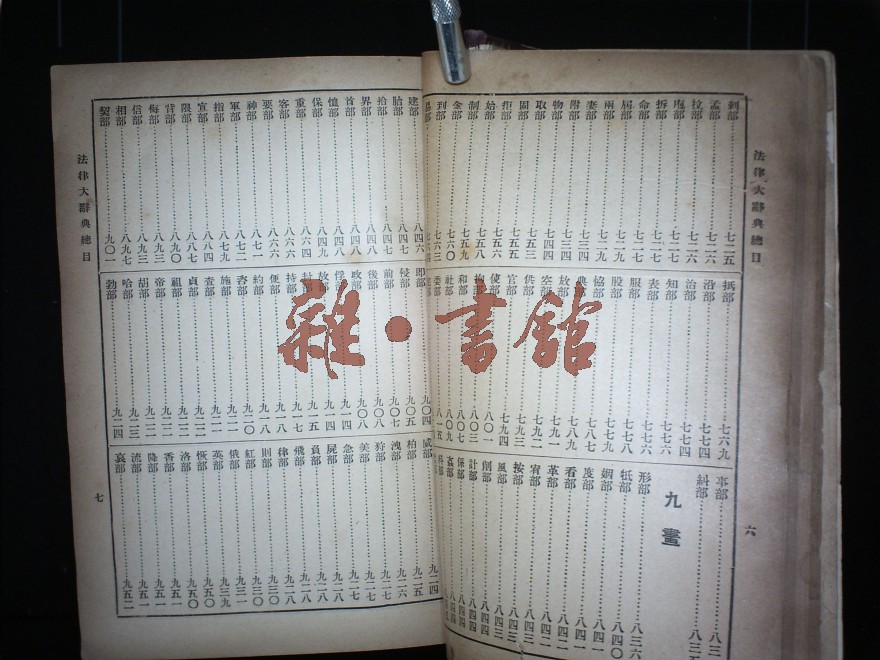 法律大辭典總目
六
刺部 七二五
孟部 七二六
拉部 七二六
拆部 七二七
命部 七二七
屆部 七二九
兩部 七二九
妻部 七三四
附部 七三四
物部
取部 七五三
固部 七五五
拒部 七五五
始部 七五八
制部 七五九
金部 七六〇
到部 七六三
抵部 七六九
沿部 七七四
治部 七七四
知部 七七六
表部 七七六
服部 七七八
股部 七七九
協部 七八七
典部 七八九
放部 七九一
空部 七九二
供部 七九三
官部 七九四
使部 八〇一
和部 八〇七
社部 八〇九
委部 八一五
事部
糾部
九畫
形部 八三六
牴部 八四〇
姻部 八四一
度部 八四一
看部 八四二
革部 八四二
宥部 八四二
按部 八四三
風部 八四三
削部 八四四
計部 八四四
保部 八四四
法律大辭典總目
七
建部 八四六
胎部 八四七
拾部 八四七
界部 八四八
首部 八四八
恤部 八四八
保部 八四九
重部 八六四
客部 八六六
要部 八六六
神部 八七一
軍部 八七二
指部 八七九
宣部 八八四
限部 八八七
背部 八九〇
侮部 八九三
信部 八九三
相部 八九七
契部 九〇一
即部 九〇四
侵部 九〇五
前部 九〇七
後部 九〇八
政部 九〇八
俘部 九一四
故部 九一四
持部 九一七
便部 九一八
約部 九一八
施部 九二一
查部 九二二
貞部 九二二
祖部 九二二
帝部 九二二
胡部 九二二
哈部 九二三
勃部 九二四
威部 九二四
柏部 九二五
洩部 九二六
狩部 九二七
美部 九二七
急部 九二八
屍部 九二八
負部 九二八
飛部 九二八
律部 九二八
則部 九三〇
紅部 九三〇
俄部 九三一
英部 九三九
恢部 九五〇
洛部 九五〇
香部 九五一
降部 九五一
流部 九五一
哀部 九五二
雜·書館